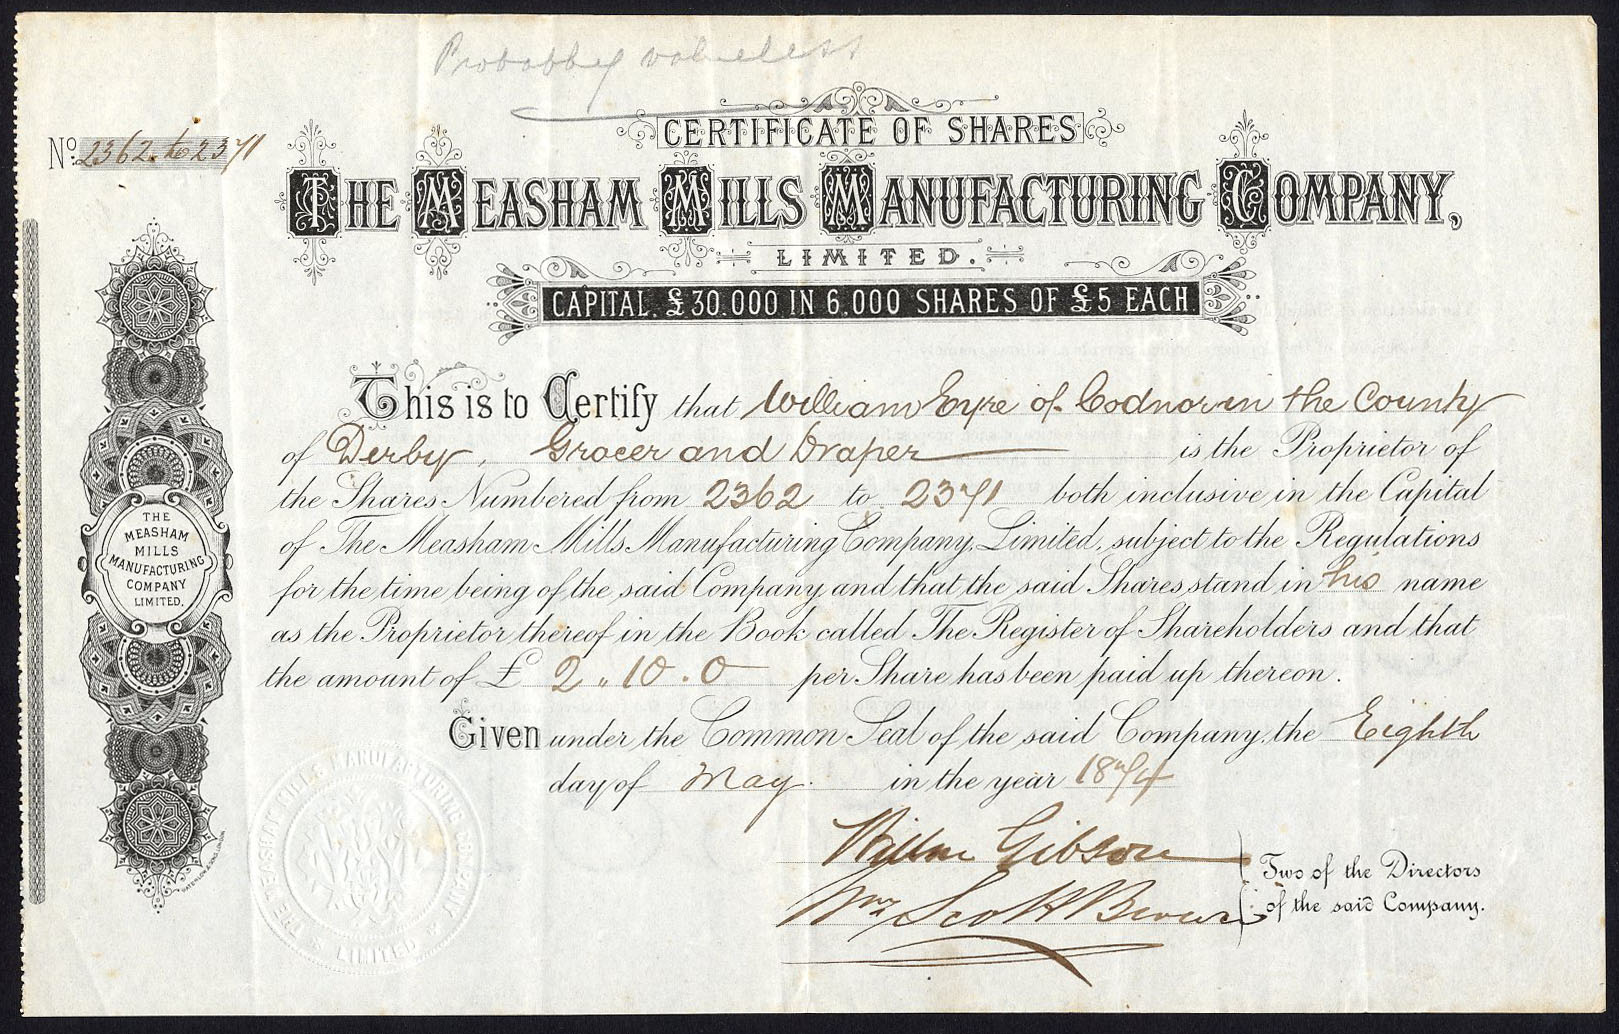 Probably valueless
CERTIFICATE OF SHARES
No. 2362 to 2371
THE MEASHAM MILLS MANUFACTURING COMPANY,
LIMITED.
CAPITAL. £30.000 IN 6.000 SHARES OF £5 EACH.
This is to Certify that William Eyre of Codnor in the County
of Derby, Grocer and Draper is the Proprietor of
the Shares Numbered from 2362 to 2371 both inclusive in the Capital
of The Measham Mills Manufacturing Company, Limited, subject to the Regulations
for the time being of the said Company and that the said Shares stand in his name
as the Proprietor thereof in the Book called The Register of Shareholders and that
the amount of £ 2.10.0 per Share has been paid up thereon.
Given under the Common Seal of the said Company, the Eighth
day of May in the year 1874
Gibson
Wm Scott Brown
Two of the Directors
of the said Company.
THE
MEASHAM
MILLS
MANUFACTURING
COMPANY
LIMITED.
WATERLOW & SONS, LONDON
THE MEASHAM MILLS MANUFACTURING COMPANY
LIMITED